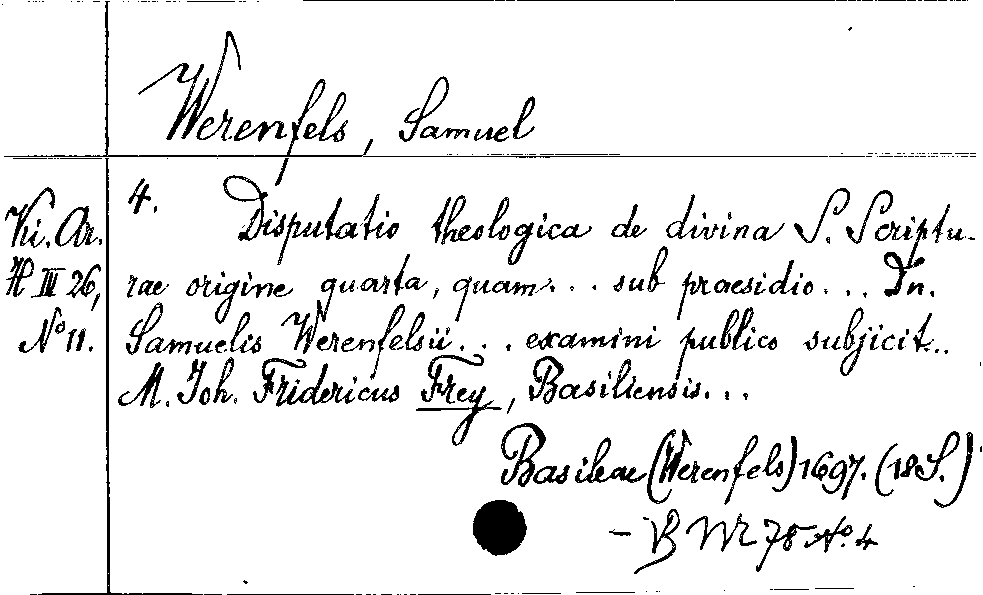 Werenfels, Samuel
Ki. Ar.
H III 26,
No 11.
4. Disputatio theologica de divina S. Scriptu-
rae origine quarta, quam... sub praesidio... Dn.
Samuelis Werenfelsii... examini publico subjicit..
M. Joh. Fridericus Frey, Basiliensis...
Basileae (Werenfels) 1697. (18 S.)
- B VII 78 No. 4